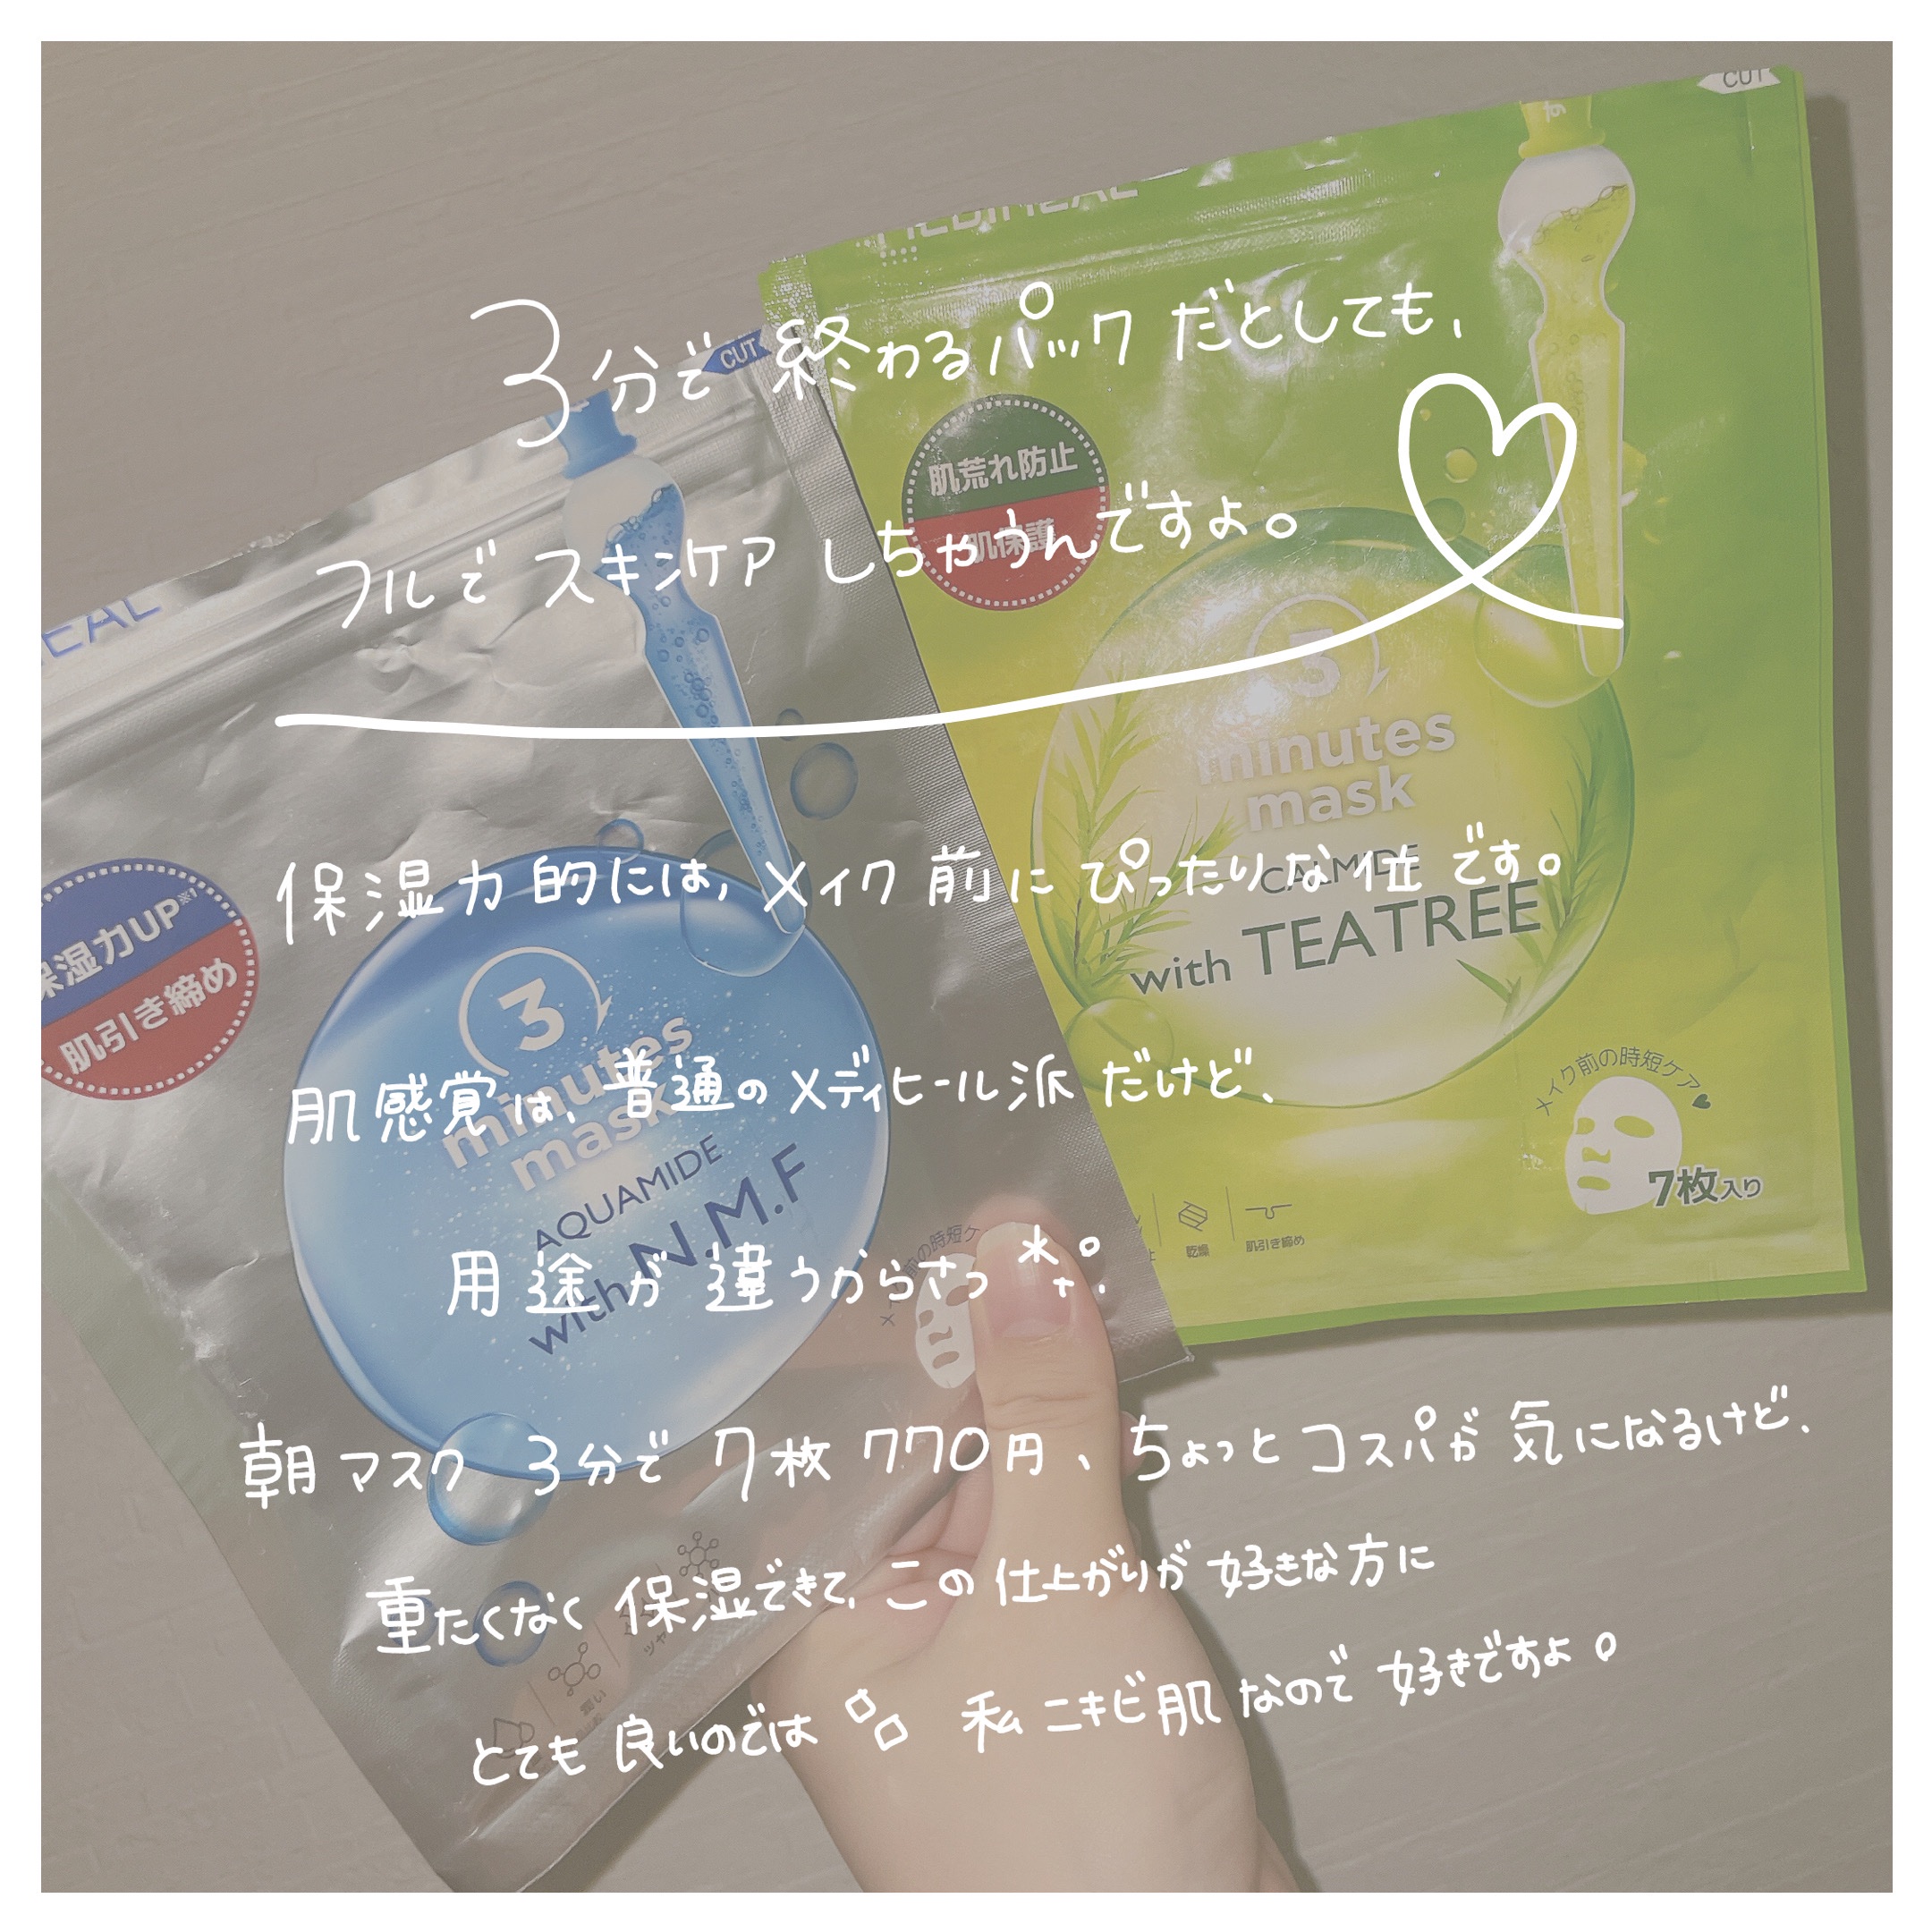 CUT
3分で終わるパックだとしても、
CUT
肌荒れ防止
肌保護
フルでスキンケアしちゃうんですよ。
3
minutes
mask
CALMIDE
with TEATREE
保湿力的には、メイク前にぴったりな位です。
保湿力UP※1
肌引き締め
3
minutes
mask
AQUAMIDE
with N.M.F
肌感覚は、普通のメディヒール派だけど、
メイク前の時短ケア♥
7枚入り
乾燥
肌引き締め
用途が違うからさっ
朝マスク 3分で 7枚 770円、ちょっとコスパが気になるけど、
重たくなく保湿できて、この仕上がりが好きな方に
とても良いのでは 私ニキビ肌なので好きですよ。